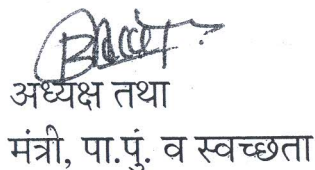 अध्यक्ष तथा
मंत्री, पा.पुं. व स्वच्छता